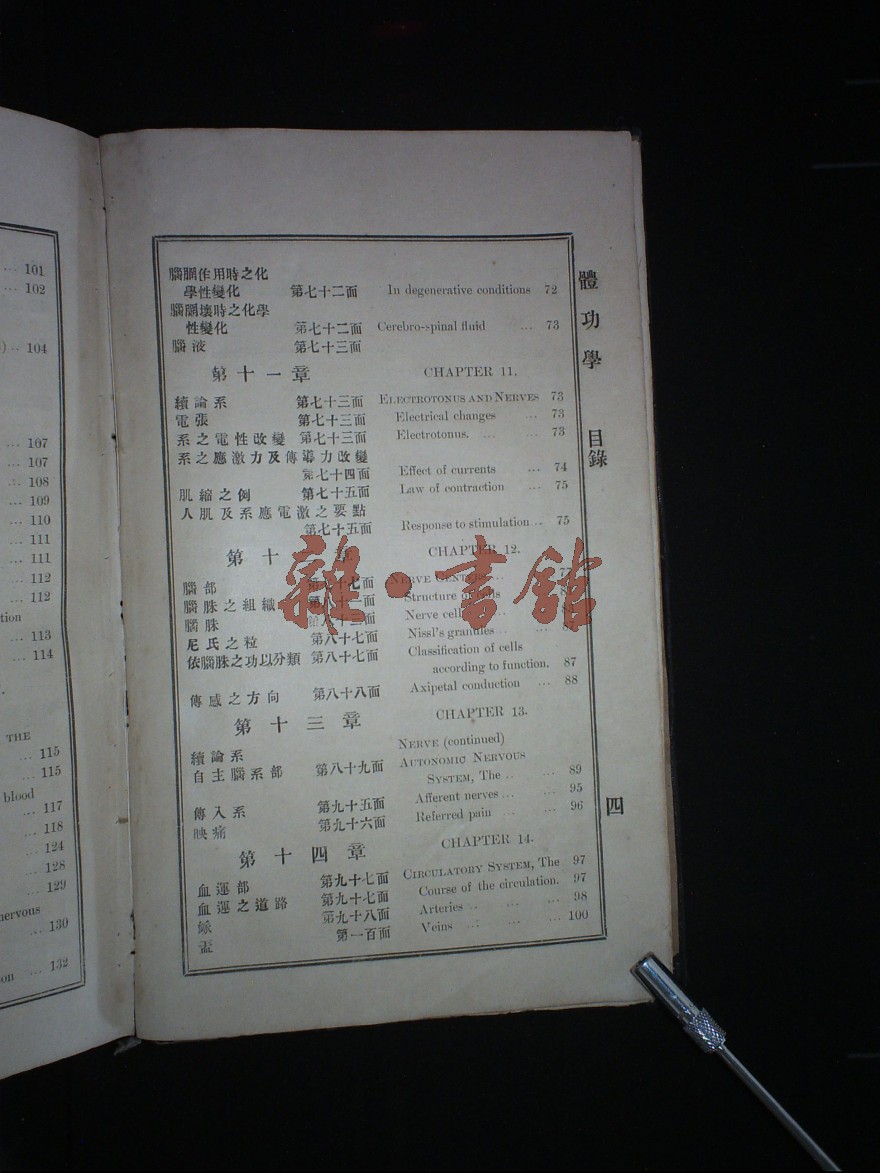 101
102
104
107
107
108
109
110
111
111
112
112
tion
113
114
THE
115
115
blood
117
118
124
128
129
nervous
130
on ... 132
體功學 目錄
四
腦關作用時之化
學性變化 第七十二面 In degenerative conditions 72
腦關壞時之化學
性變化 第七十二面 Cerebro-spinal fluid ... 73
腦液 第七十三面
第十一章 CHAPTER 11.
續論系 第七十三面 ELECTROTONUS AND NERVES 73
電張 第七十三面 Electrical changes ... 73
系之電性改變 第七十三面 Electrotonus. ... ... 73
系之應激力及傳導力改變
第七十四面 Effect of currents ... 74
肌縮之例 第七十五面 Law of contraction ... 75
人肌及系應電激之要點
第七十五面 Response to stimulation .. 75
第十 章 CHAPTER 12.
腦部 NERVE CENTERS ... 77
腦脎之組織 Structure of cells
腦脎 Nerve cell
尼氏之粒 第八十七面 Nissl's granules ..
依腦脎之功以分類 第八十七面 Classification of cells
according to function. 87
傳感之方向 第八十八面 Axipetal conduction ... 88
第十三章 CHAPTER 13.
續論系 NERVE (continued)
自主腦系部 第八十九面 AUTONOMIC NERVOUS
SYSTEM, The .. ... 89
傳入系 第九十五面 Afferent nerves ... ... 95
映痛 第九十六面 Referred pain ... ... 96
第十四章 CHAPTER 14.
血運部 第九十七面 CIRCULATORY SYSTEM, The 97
血運之道路 第九十七面 Course of the circulation. 97
第九十八面 Arteries .. ... ... 98
第一百面 Veins ... ... ... 100
雜·書館